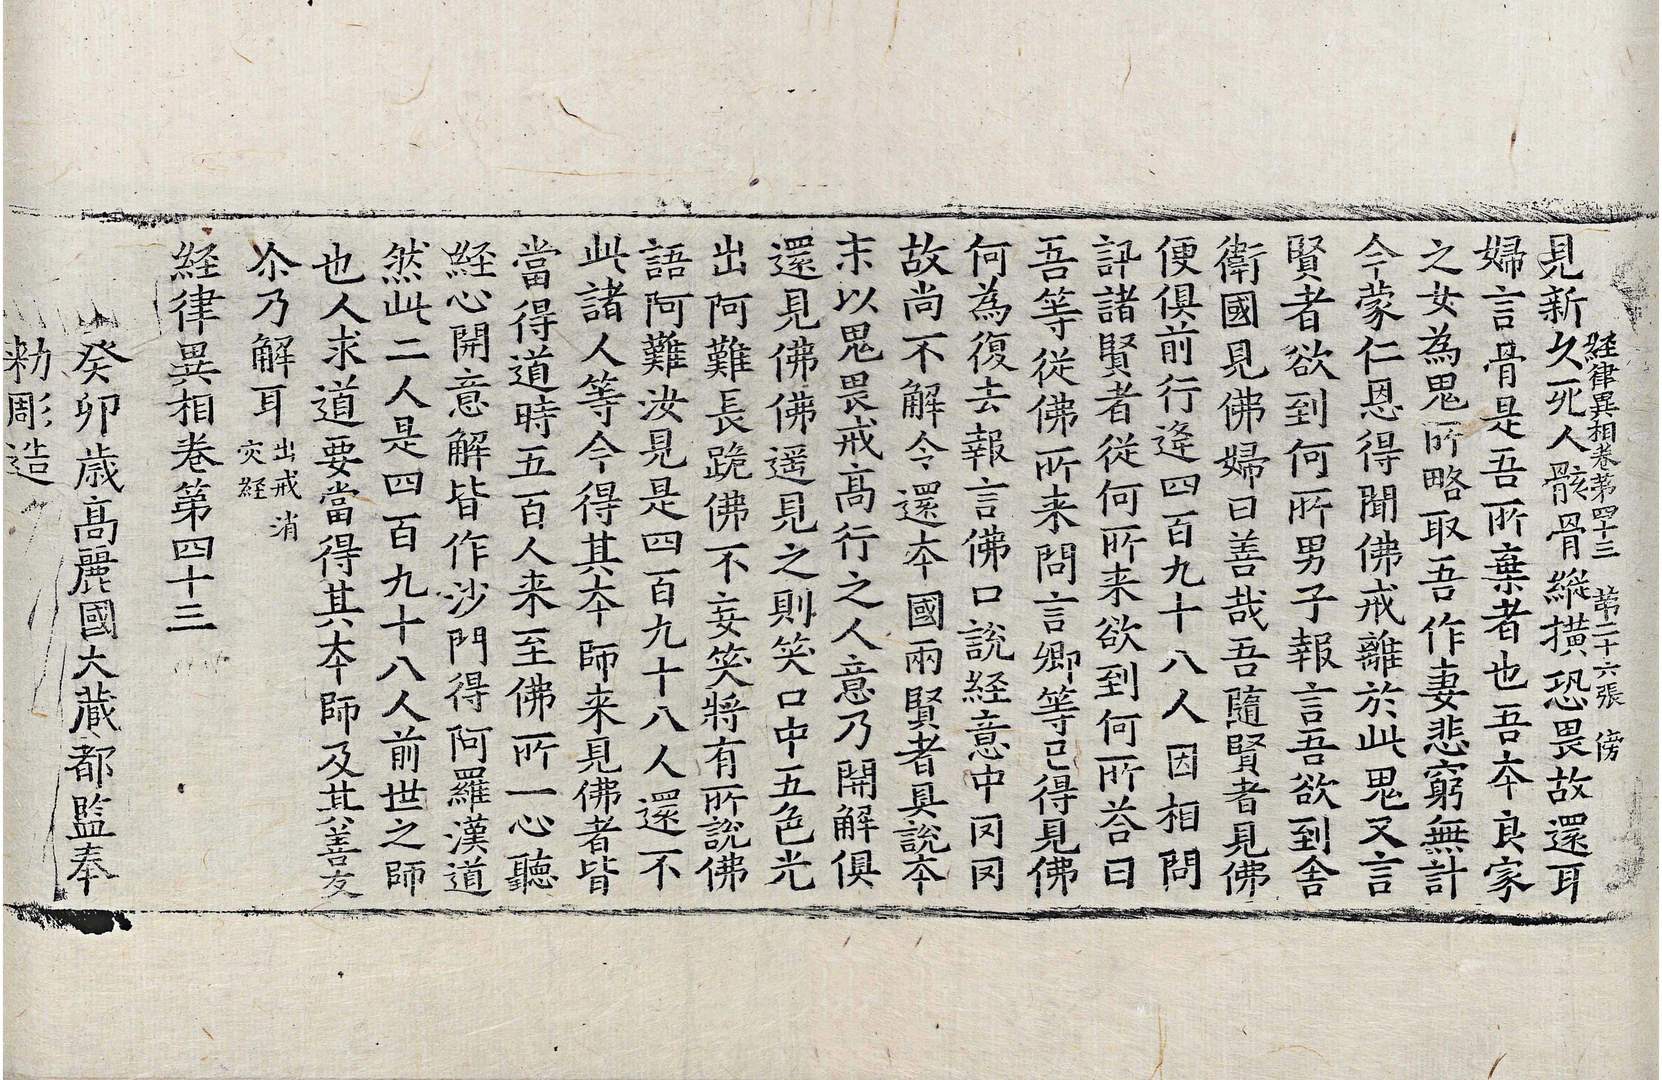 経律異相卷第四十三 第二十六張 傍
見新久死人骸骨縱撗恐畏故還耳
婦言骨是吾所棄者也吾夲良家
之女為鬼所略取吾作妻悲窮無計
今蒙仁恩得聞佛戒離於此鬼又言
賢者欲到何所男子報言吾欲到舍
衛國見佛婦曰善哉吾隨賢者見佛
便俱前行逢四百九十八人因相問
訊諸賢者從何所来欲到何所荅曰
吾等從佛所来問言卿等已得見佛
何為復去報言佛口說経意中罔罔
故尚不解今還夲國兩賢者具說夲
末以鬼畏戒高行之人意乃開解俱
還見佛佛遥見之則笑口中五色光
出阿難長跪佛不妄笑將有所說佛
語阿難汝見是四百九十八人還不
此諸人等今得其夲師来見佛者皆
當得道時五百人来至佛所一心聽
経心開意解皆作沙門得阿羅漢道
然此二人是四百九十八人前世之師
也人求道要當得其夲師及其善友
尒乃解耳 出戒消
灾経
経律異相卷第四十三
癸卯歳高麗國大藏都監奉
勑彫造